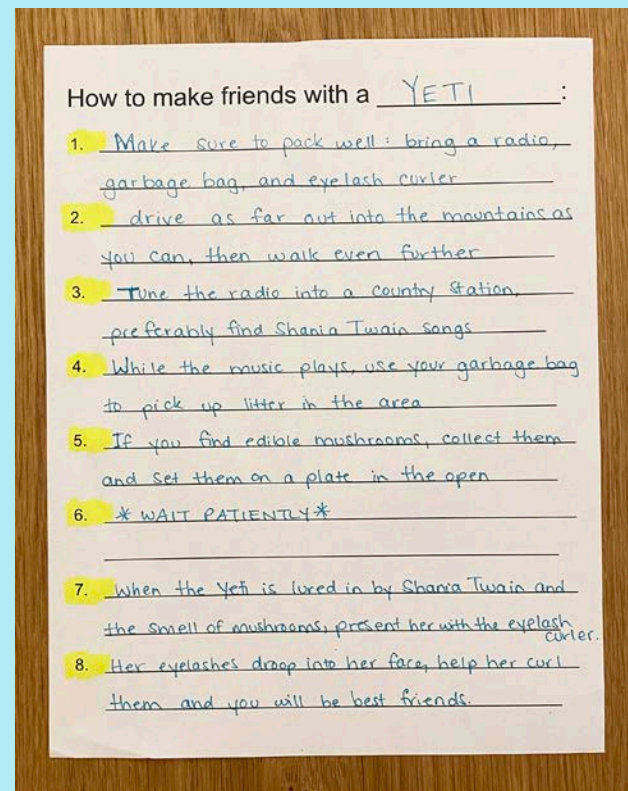 How to make friends with a YETI :
1. Make sure to pack well: bring a radio,
garbage bag, and eyelash curler
2. drive as far out into the mountains as
you can, then walk even further
3. Tune the radio into a country station,
preferably find Shania Twain songs
4. While the music plays, use your garbage bag
to pick up litter in the area
5. If you find edible mushrooms, collect them
and set them on a plate in the open
6. * WAIT PATIENTLY *
7. When the Yeti is lured in by Shania Twain and
the smell of mushrooms, present her with the eyelash
curler.
8. Her eyelashes droop into her face, help her curl
them and you will be best friends.